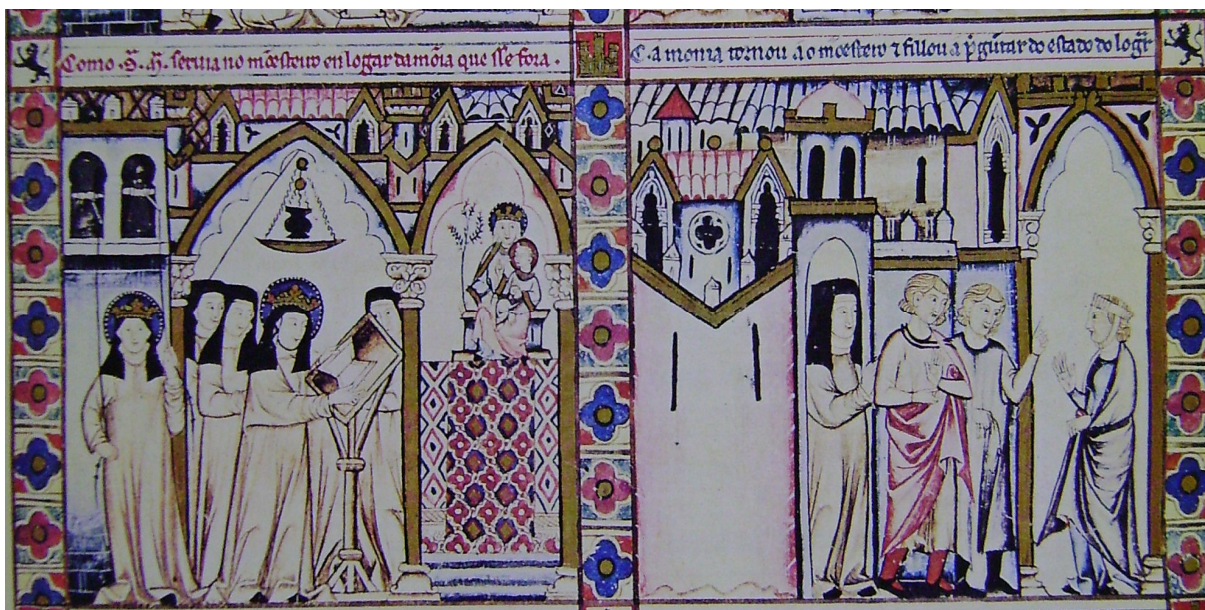 Como S. M. seruia no mõesteiro en logar da mõia que sse fora.
C. a monia tornou a o moesteiro ⁊ fillou a p̃guntar do estado do logar